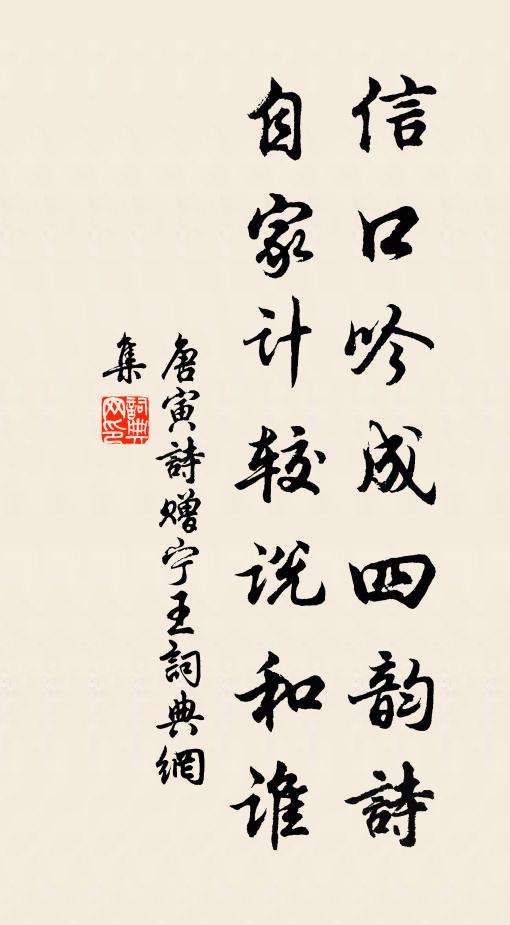 信口吟成四韵詩
自家计较说和谁
唐寅詩赠宁王詞典網
集
詞典
网印